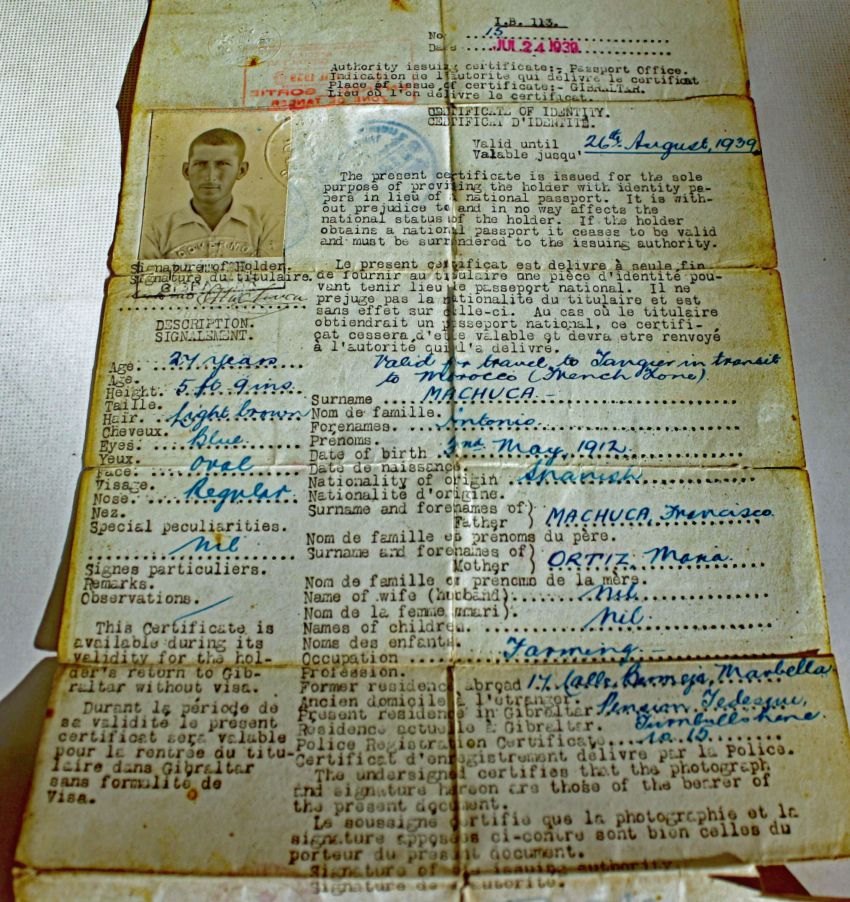 I.B. 113.
No 15
Date JUL 24 1939
Authority issuing certificate:- Passport Office.
Indication de l'autorite qui délivre le certificat
Place of issue of certificate:- GIBRALTAR.
Lieu où l'on délivre le certificat.
CERTIFICATE OF IDENTITY.
CERTIFICAT D'IDENTITE.
Valid until
Valable jusqu' 26th August, 1939
The present certificate is issued for the sole
purpose of providing the holder with identity pa-
pers in lieu of a national passport. It is with-
out prejudice to and in no way affects the
national status of the holder. If the holder
obtains a national passport it ceases to be valid
and must be surrendered to the issuing authority.
Signature of Holder.
Signature du titulaire.
Le present certificat est delivré à seule fin
de fournir au titulaire une pièce d'identité pou-
vant tenir lieu de passeport national. Il ne
prejuge pas la nationalite du titulaire et est
sans effet sur celle-ci. Au cas où le titulaire
obtiendrait un passeport national, ce certifi-
çat cessera d'etre valable et devra etre renvoyé
à l'autorité qui l'a délivre.
Valid for travel to Tangier in transit
to Morocco (French Zone).
DESCRIPTION.
SIGNALEMENT.
Age. 27 years
Age.
Height. 5 ft 9 ins.
Taille.
Hair. Light brown
Cheveux.
Eyes. Blue
Yeux.
Face. Oval
Visage.
Nose. Regular
Nez.
Special peculiarities.
Nil
Signes particuliers.
Remarks.
Observations.
This Certificate is
available during its
validity for the hol-
der's return to Gib-
raltar without visa.
Durant la période de
sa validité le present
certificat sera valable
pour la rentrée du titu-
laire dans Gibraltar
sans formalite de
Visa.
Surname MACHUCA -
Nom de famille.
Forenames. Antonio.
Prénoms.
Date of birth 2nd May, 1912.
Date de naissance
Nationality of origin Spanish
Nationalité d'origine.
Surname and forenames of
Father MACHUCA, Francisco
Nom de famille et prénoms du père.
Surname and forenames of
Mother ORTIZ, Maria.
Nom de famille ou prenoms de la mère.
Name of wife (husband) Nil.
Nom de la femme (mari).
Names of children. Nil.
Noms des enfants
Occupation Farming -
Profession.
Former residence abroad 17 Calle Bermeja, Marbella
Ancien domicile à l'étranger.
Present residence in Gibraltar Pension Tedesqui,
Residence actuelle à Gibraltar. Turnbulls Lane
Police Registration Certificate 10.15.
Certificat d'enregistrement délivré par la Police.
The undersigned certifies that the photograph
and signature hereon are those of the bearer of
the present document.
Le soussigne certifie que la photographie et la
signature apposées ci-contre sont bien celles du
porteur du present document.
Signature of the issuing authority.
Signature de l'autorité.